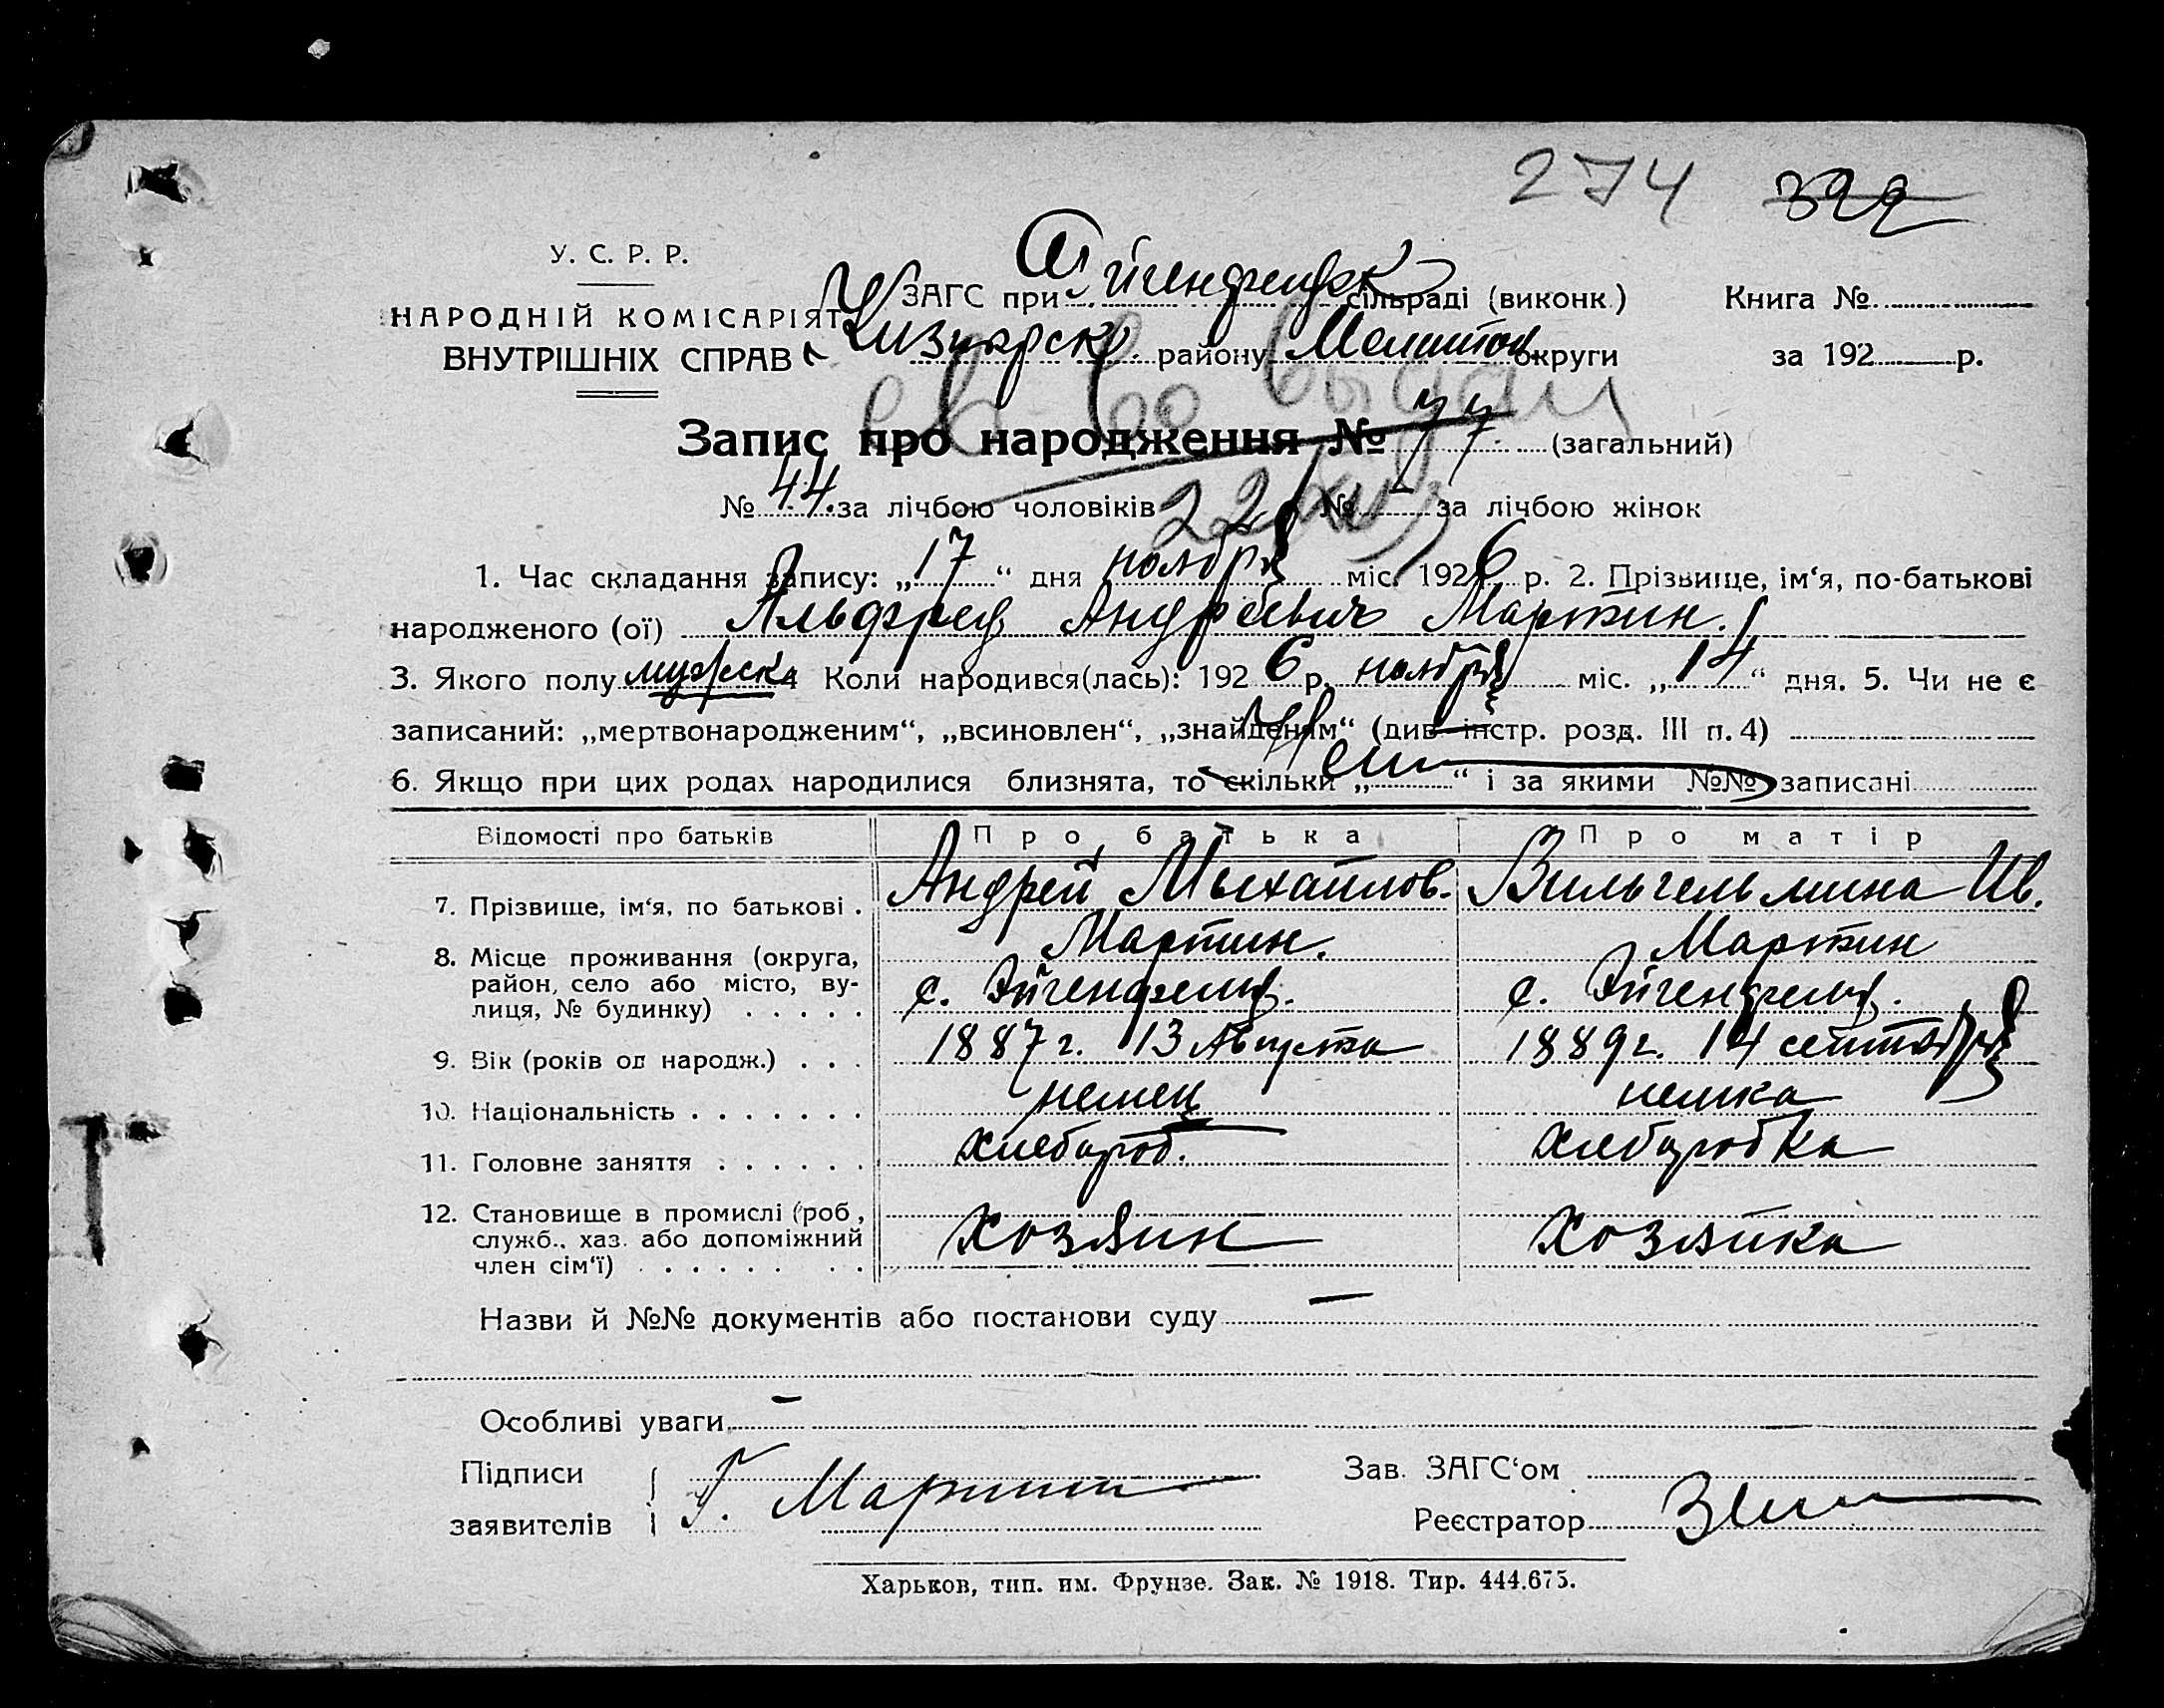 274 322
У. С. Р. Р.
НАРОДНІЙ КОМІСАРІЯТ
ВНУТРІШНІХ СПРАВ
ЗАГС при Эйгенфельдск сільраді (виконк.)
Книга №
району Мелитоп округи
за 192 р.
Запис про народження № 77 (загальний)
№ 44. за лічбою чоловіків № за лічбою жінок
22/XII
1. Час складання запису: „17“ дня ноября міс. 1926 р. 2. Прізвище, ім‘я, по-батькові
народженого (ої) Альфред Андреевич Мартин.
3. Якого полу мужск 4 Коли народився(лась): 1926 р. ноября міс. „14“ дня. 5. Чи не є
записаний: „мертвонародженим“, „всиновлен“, „знайденим“ (див. інстр. розд. III п. 4)
6. Якщо при цих родах народилися близнята, то скільки „ “ і за якими №№ записані
Відомості про батьків Про батька Про матір
7. Прізвище, ім‘я, по батькові . Андрей Михайлов. Вильгельмина Ив.
Мартин. Мартин
8. Місце проживання (округа,
район, село або місто, ву-
лиця, № будинку) . . . . . с. Эйгенфельд. с. Эйгенфельд.
9. Вік (років од народж.) . . . 1887 г. 13 Августа 1889 г. 14 сентября
10. Національність . . . . . . . немец немка
11. Головне заняття . . . . . . хлебороб. хлеборобка
12. Становище в промислі (роб.,
служб., хаз. або допоміжний
член сім‘ї) . . . . . . . . хозяин хозяйка
Назви й №№ документів або постанови суду —
Особливі уваги —
Підписи
заявителів
Г. Мартин
Зав. ЗАГС‘ом
Реєстратор
Харьков, тип. им. Фрунзе. Зак. № 1918. Тир. 444.675.